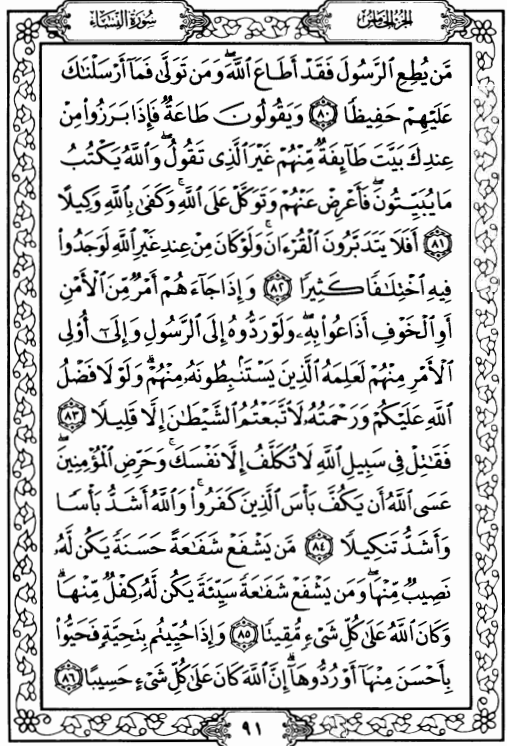 سُورَةُ النِّسَاءِ
الجُزْءُ الخَامِسُ
مَّن يُطِعِ الرَّسُولَ فَقَدْ أَطَاعَ اللَّهَ ۖ وَمَن تَوَلَّىٰ فَمَا أَرْسَلْنَاكَ
عَلَيْهِمْ حَفِيظًا ٨٠ وَيَقُولُونَ طَاعَةٌ فَإِذَا بَرَزُوا مِنْ
عِندِكَ بَيَّتَ طَائِفَةٌ مِّنْهُمْ غَيْرَ الَّذِي تَقُولُ ۖ وَاللَّهُ يَكْتُبُ
مَا يُبَيِّتُونَ ۖ فَأَعْرِضْ عَنْهُمْ وَتَوَكَّلْ عَلَى اللَّهِ ۚ وَكَفَىٰ بِاللَّهِ وَكِيلًا
٨١ أَفَلَا يَتَدَبَّرُونَ الْقُرْءَانَ ۚ وَلَوْ كَانَ مِنْ عِندِ غَيْرِ اللَّهِ لَوَجَدُوا
فِيهِ اخْتِلَٰفًا كَثِيرًا ٨٢ وَإِذَا جَاءَهُمْ أَمْرٌ مِّنَ الْأَمْنِ
أَوِ الْخَوْفِ أَذَاعُوا بِهِ ۖ وَلَوْ رَدُّوهُ إِلَى الرَّسُولِ وَإِلَىٰ أُولِي
الْأَمْرِ مِنْهُمْ لَعَلِمَهُ الَّذِينَ يَسْتَنبِطُونَهُ مِنْهُمْ ۗ وَلَوْلَا فَضْلُ
اللَّهِ عَلَيْكُمْ وَرَحْمَتُهُ لَاتَّبَعْتُمُ الشَّيْطَٰنَ إِلَّا قَلِيلًا ٨٣
فَقَٰتِلْ فِي سَبِيلِ اللَّهِ لَا تُكَلَّفُ إِلَّا نَفْسَكَ ۚ وَحَرِّضِ الْمُؤْمِنِينَ ۖ
عَسَى اللَّهُ أَن يَكُفَّ بَأْسَ الَّذِينَ كَفَرُوا ۚ وَاللَّهُ أَشَدُّ بَأْسًا
وَأَشَدُّ تَنكِيلًا ٨٤ مَّن يَشْفَعْ شَفَٰعَةً حَسَنَةً يَكُن لَّهُ
نَصِيبٌ مِّنْهَا ۖ وَمَن يَشْفَعْ شَفَٰعَةً سَيِّئَةً يَكُن لَّهُ كِفْلٌ مِّنْهَا ۗ
وَكَانَ اللَّهُ عَلَىٰ كُلِّ شَيْءٍ مُّقِيتًا ٨٥ وَإِذَا حُيِّيتُم بِتَحِيَّةٍ فَحَيُّوا
بِأَحْسَنَ مِنْهَا أَوْ رُدُّوهَا ۗ إِنَّ اللَّهَ كَانَ عَلَىٰ كُلِّ شَيْءٍ حَسِيبًا ٨٦
٩١